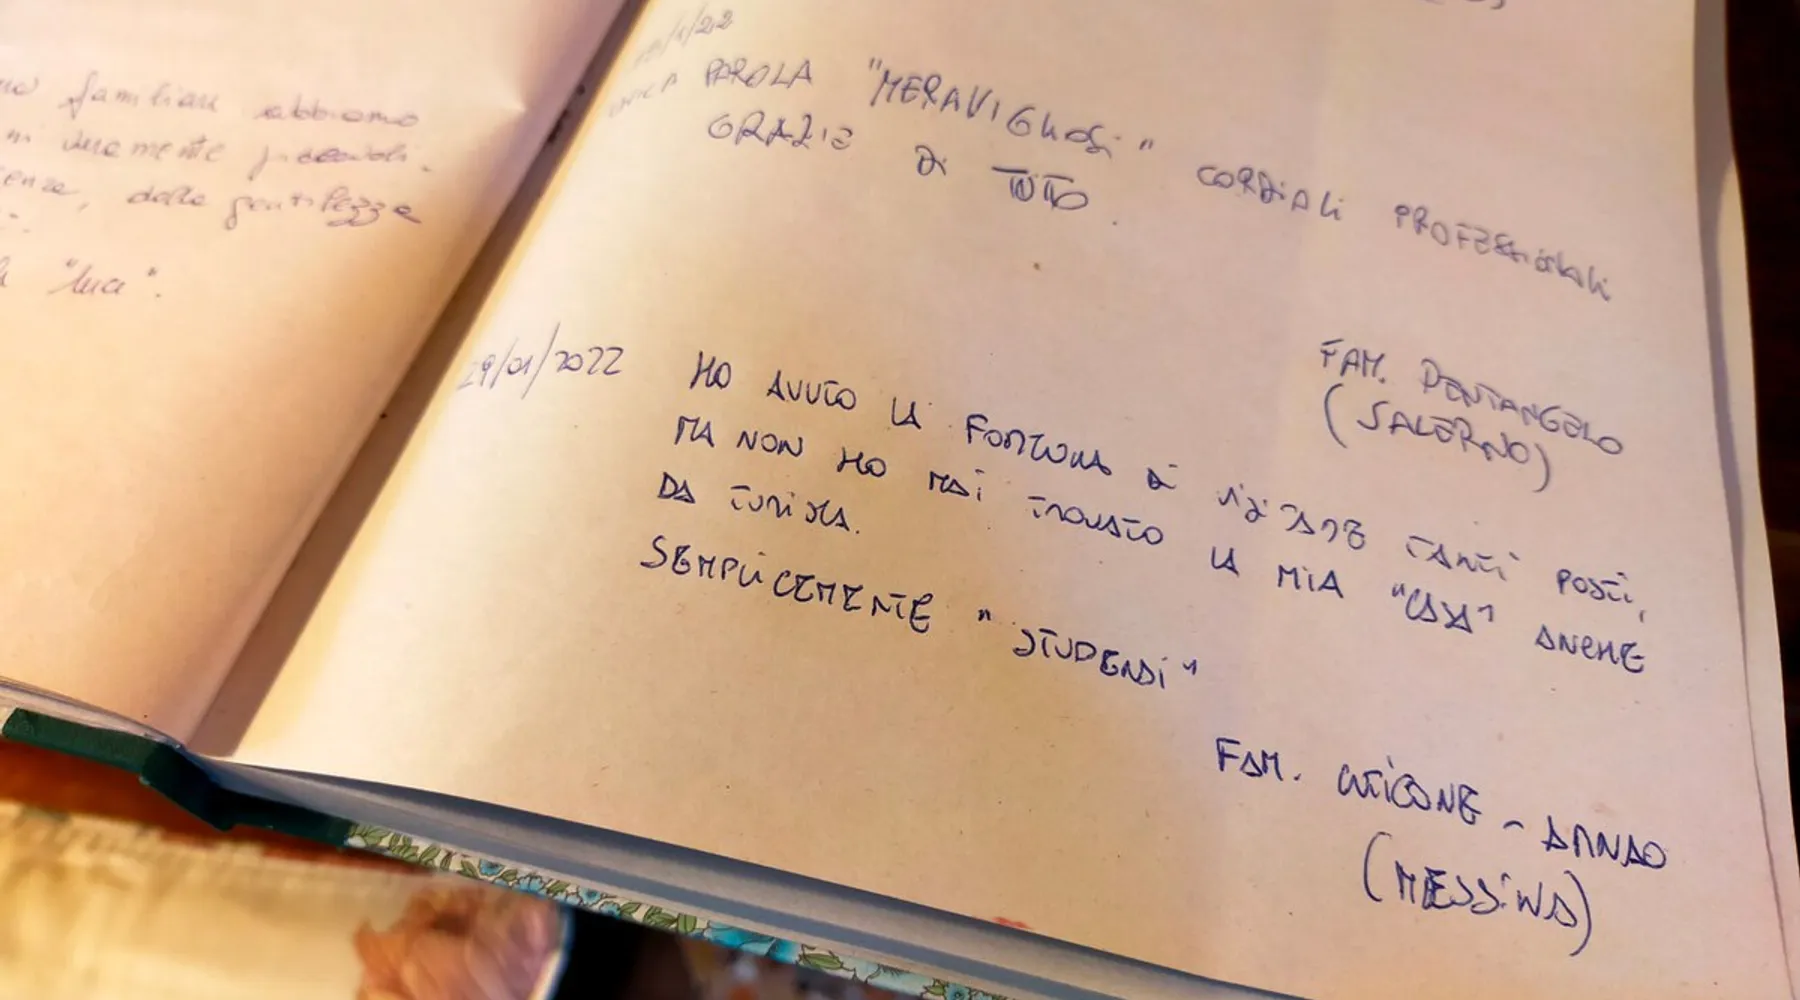 familiari abbiamo
veramente piacevoli.
dalla gentilezza
"luci".
/1/22
UNICA PAROLA "MERAVIGLIOSI" CORDIALI PROFESSIONALI
GRAZIE DI TUTTO.
FAM. PENTANGELO
(SALERNO)
29/01/2022 HO AVUTO LA FORTUNA DI VISITARE TANTI POSTI,
MA NON HO MAI TROVATO LA MIA "CASA" ANCHE
DA TURISTA.
SEMPLICEMENTE "STUPENDI"
FAM. CUTICONE - ARNAO
(MESSINA)